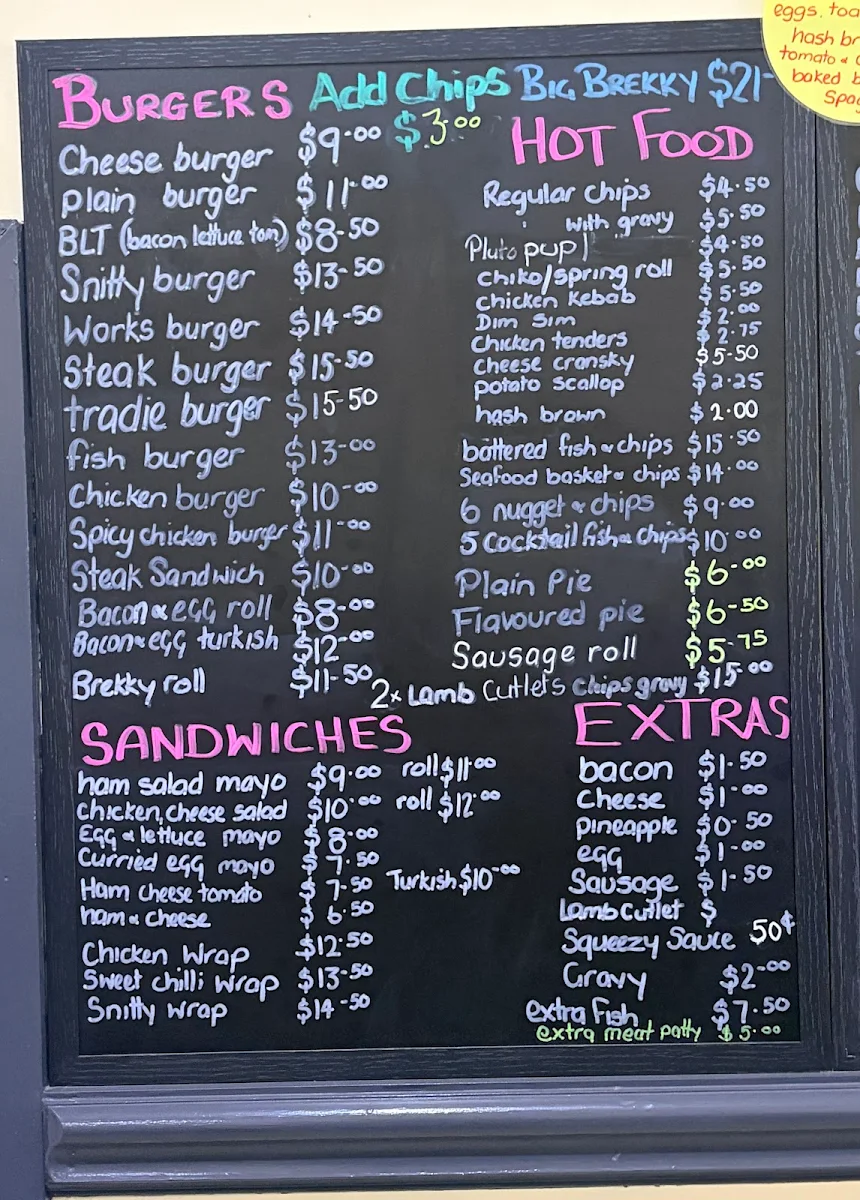 eggs, toa
hash br
tomato &
baked b
Spag
BURGERS Add Chips $3.00
BIG BREKKY $21-
Cheese burger $9.00
plain burger $11.00
BLT (bacon lettuce tom) $8.50
Snitty burger $13.50
Works burger $14.50
Steak burger $15.50
tradie burger $15.50
fish burger $13.00
Chicken burger $10.00
Spicy chicken burger $11.00
Steak Sandwich $10.00
Bacon & EGG roll $8.00
Bacon & EGG turkish $12.00
Brekky roll $11.50
HOT FOOD
Regular chips $4.50
" with gravy $5.50
Pluto pup $4.50
chiko/spring roll $5.50
chicken kebab $5.50
Dim Sim $2.00
Chicken tenders $2.75
cheese cransky $5.50
potato scallop $2.25
hash brown $2.00
battered fish & chips $15.50
Seafood basket & chips $14.00
6 nugget & chips $9.00
5 Cocktail fish & chips $10.00
Plain Pie $6.00
Flavoured pie $6.50
Sausage roll $5.75
2x Lamb Cutlets chips gravy $15.00
SANDWICHES
ham salad mayo $9.00 roll $11.00
Chicken, cheese salad $10.00 roll $12.00
Egg & lettuce mayo $8.00
Curried egg mayo $7.50
Ham cheese tomato $7.50 Turkish $10.00
ham & cheese $6.50
Chicken Wrap $12.50
Sweet chilli wrap $13.50
Snitty wrap $14.50
EXTRAS
bacon $1.50
Cheese $1.00
pineapple $0.50
egg $1.00
Sausage $1.50
Lamb Cutlet $
Squeezy Sauce 50¢
Gravy $2.00
extra Fish $7.50
extra meat patty $5.00